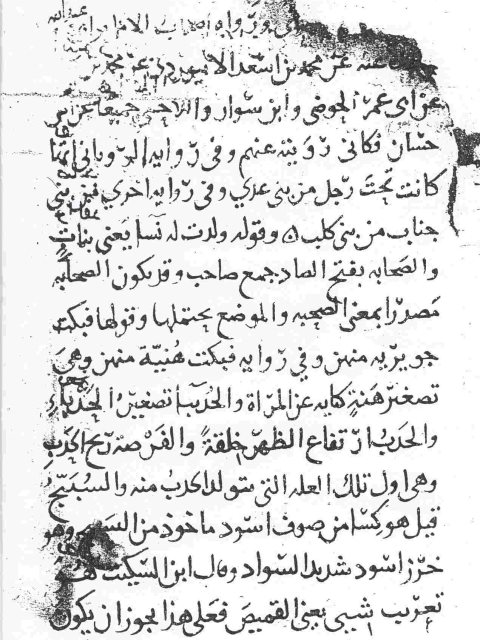 ورواه اصحاب الامام ابي
عنه عن محمد بن اسعد الا عن محمد بن
عن ابي عمر الحوضي وابن سوار واللاحقي جميعا عن
حسّان فكاني روينه عنهم وفي روايه الروياني انها
كانت تحتَ رجل من بني عدي وفي روايه اخري فمن بني
جناب من بني كلب وقوله ولدت له نسا يَعني بناتٍ
والصَحابه بفتح الصاد جمع صاحب وقد يكون الصحابه
مَصدرًا بمعني الصحبه والموضع يحتملها وقولها فبكت
جويريه منهن وفي روايه فبكت هُنيّة منهن وهيَ
تصغير هَنةٍ كنايه عن المرْاة والحُدَيبا تصغيرُ الحَدْباءِ
والحدَبُ ارتفاع الظهر خلقةً والفَرْصة ريح الحدب
وهي اول تلك العله التي يتولد الحدبُ منه والسُبَيّجُ
قيل هو كسا من صوف اسود ماخوذ من السبج وهو
خرز اسود شديد السواد وقال ابن السّكيت هُوَ
تعريب شبي يعني القميص فعلي هذا يجوز ان يكون